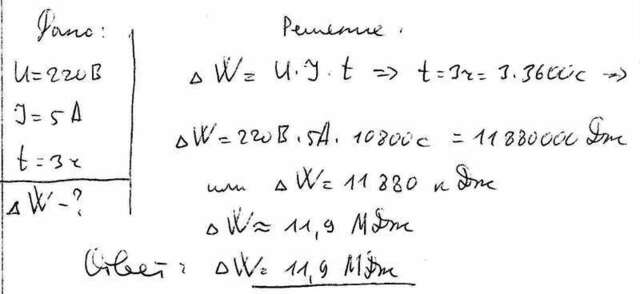 Дано:
U = 220 В
J = 5 А
t = 3 ч
ΔW - ?
Решение.
ΔW = U · J · t => t = 3ч = 3 · 3600 с =>
ΔW = 220 В · 5 А · 10800 с = 11880000 Дж
или ΔW = 11 880 к Дж
ΔW ≈ 11,9 МДж
Ответ: ΔW = 11,9 МДж